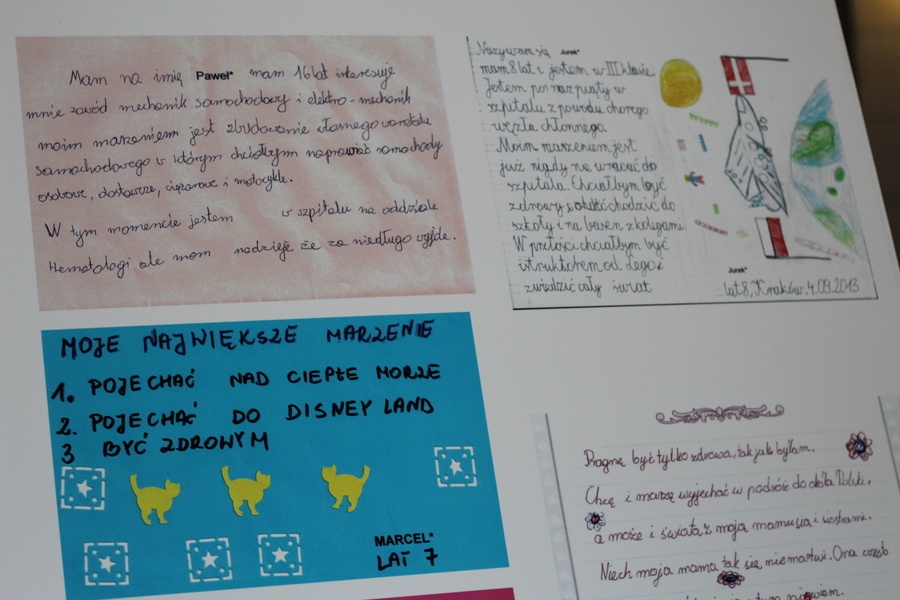 Mam na imię Paweł* mam 16 lat interesuje
mnie zawód mechanik samochodowy i elektro-mechanik
moim marzeniem jest zbudowanie własnego warsztatu
samochodowego w którym chciałbym naprawiać samochody
osobowe, dostawcze, ciężarowe i motocykle.
W tym momencie jestem w szpitalu na oddziale
Hematologi ale mam nadzieje że za niedługo wyjde.
Nazywam się Jurek*
mam 8 lat i jestem w III klasie.
Jestem po raz piąty w
szpitalu z powodu chorego
węzła chłonnego.
Moim marzeniem jest
już nigdy nie wracać do
szpitala. Chciałbym być
zdrowy, chodzić do
szkoły i na basen z kolegami.
W przyszłości chciałbym być
od Lego i
zwiedzić cały świat
Jurek*
lat 8, Kraków. 4.09.2013
MOJE NAJWIĘKSZE MARZENIE
1. POJECHAĆ NAD CIEPŁE MORZE
2. POJECHAĆ DO DISNEY LAND
3 BYĆ ZDROWYM
MARCEL*
LAT 7
Pragnę być tylko zdrowa, tak jak byłam.
Chcę i marzę wyjechać w podróż do okóła Polski,
a może i świata z moją mamusią i siostrami.
Niech moja mama tak się nie martwi. Ona często